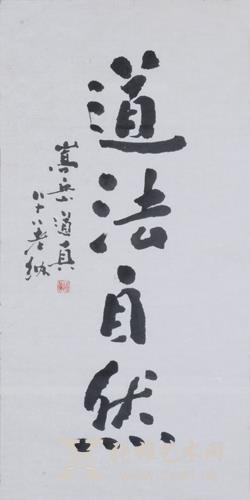 道法自然
嵩岳道真
八十八老衲